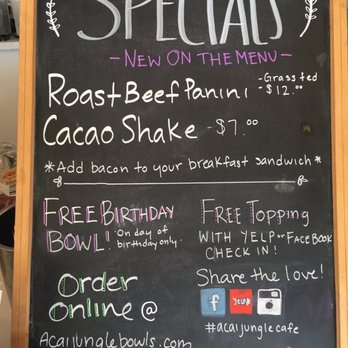 SPECIALS
- NEW ON THE MENU -
Roast Beef Panini - Grass fed
- $12.00
Cacao Shake - $7.00
*Add bacon to your breakfast sandwich*
FREE BIRTHDAY
BOWL! On day of
birthday only.
FREE Topping
WITH YELP or FACEBOOK
CHECK IN!
Order
Online @
Acaijunglebowls.com
Share the love!
f yelp
#acaijunglecafe